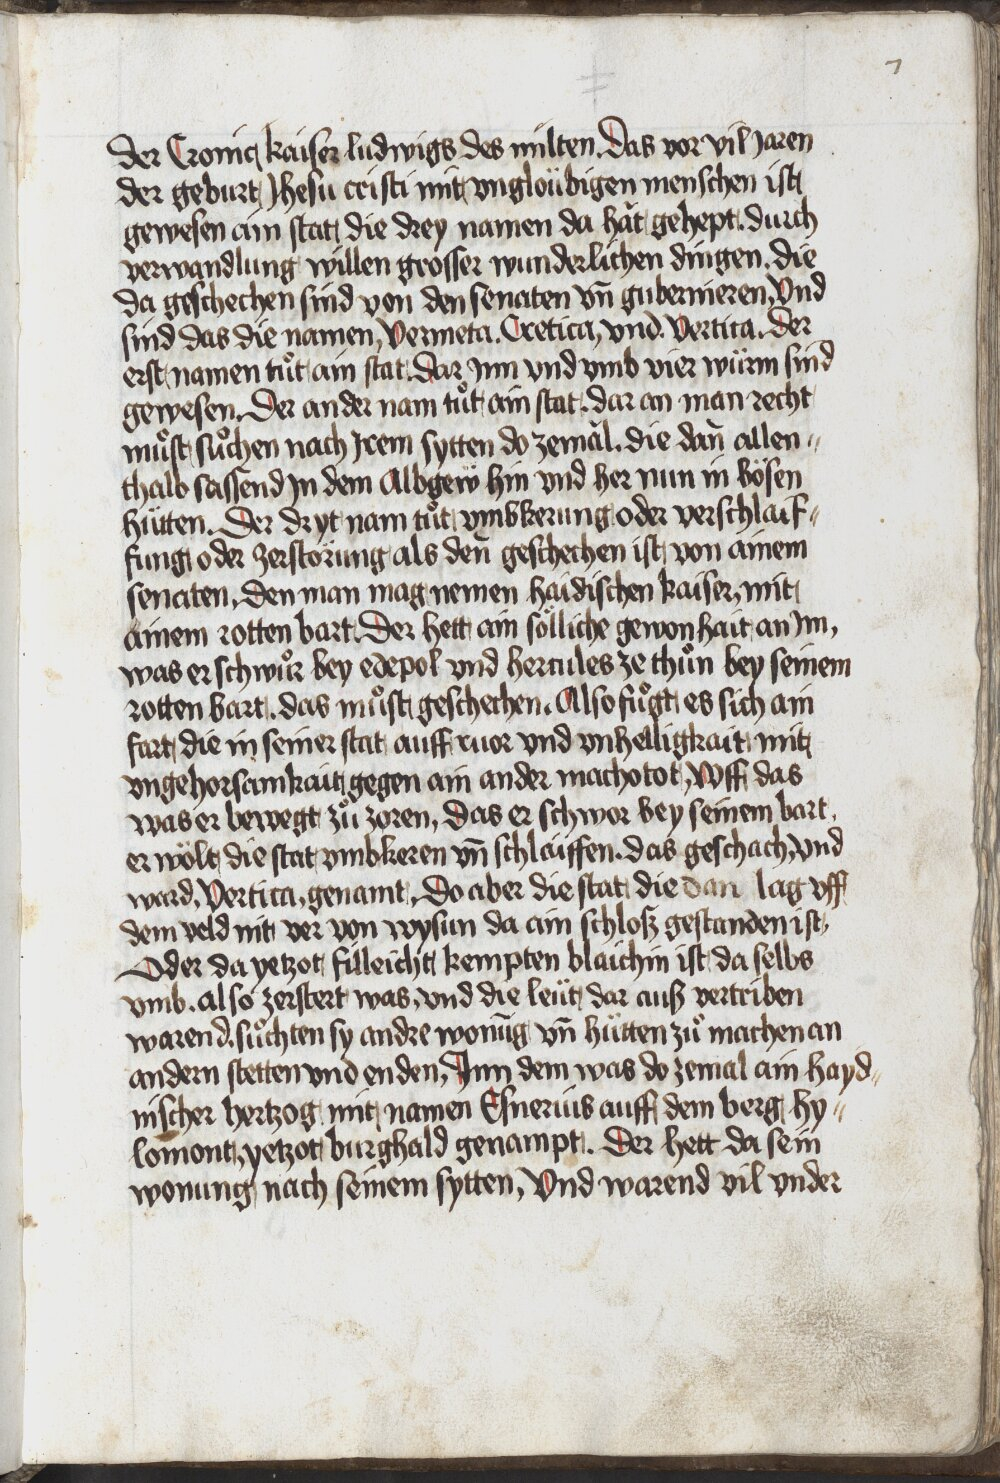 7
der Cronic kaiser ludwigs des milten. Das vor vil Jaren
der geburt Jhesu cristi mit vngloübigen menschen ist
gewesen ain stat die drey namen da hät gehept. durch
verwandlung willen grosser wunderlichen dingen. die
da geschechen sind von den senaten vn̄ gubernieren, Vnd
sind das die namen, Vermeta. Cretica, vnd. Vertica. Der
erst namen tuͦt ain stat. Dar Jnn vnd vmb vier würm sind
gewesen. Der ander nam tuͦt ain stat. dar an man recht
muͦst suͦchen nach Jrem sytten do zemäl. die dan̄ allen〃
thalb sassend Jn dem Albgew hin vnd her nun in bösen
hütten. Der dryt nam tuͦt vmbkerung oder verschlaif〃
fung oder zerstörung als den̄ geschechen ist von ainem
senaten, den man mag nemen haidischen kaiser, mit
ainem rotten bart. Der hett ain sölliche gewonhait an Jm,
was er schwuͦr bey edepol vnd hercules ze thuͦn bey seinem
rotten bart. das muͦst geschechen. Also fuͦgt es sich ain
fart die in seiner stat auff ruor vnd vnhelligkait mit
vngehorsamkait gegen ain ander machotot, Vff das
was er bewegt zuͦ zoren, das er schwor bey seinem bart,
er wölt die stat vmbkeren vn̄ schlaiffen. das geschach, vnd
ward, Vertica, genamt, Do aber die stat die dan lag vff
dem veld nit ver von wysun da ain schloß gestanden ist,
Oder da yetzot filleicht kempten blaichin ist da selbs
vmb. also zerstert was, vnd die leüt dar auß vertriben
warend. suͦchten sy andre wonūg vn̄ hütten zuͦ machen an
andern stetten vnd enden, Jnn dem was do zemal ain hayd〃
nischer hertzog mit namen Esnerius auff dem berg hy〃
lomont, yetzot burghald genampt. Der hett da sein
wonung nach seinem sytten, Vnd warend vil vnder